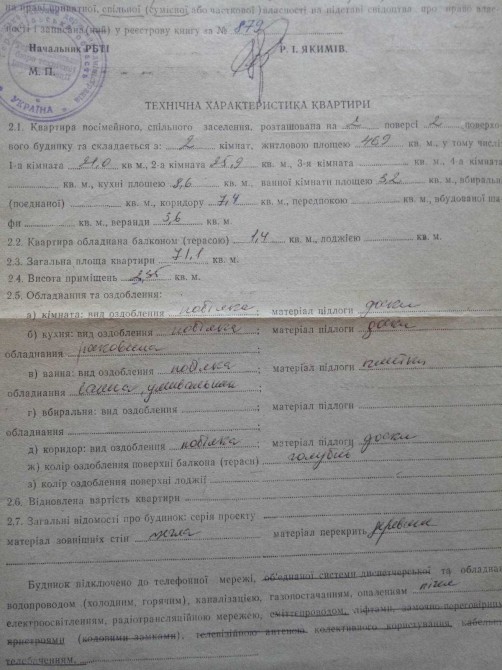 на праві приватної, спільної (сумісної або часткової) власності на підставі свідоцтва про право влас-
ності і записана (ний) у реєстрову книгу за № 879
Начальник РБТІ Р. І. ЯКИМІВ.
М. П.
УКРАЇНА
ТЕХНІЧНА ХАРАКТЕРИСТИКА КВАРТИРИ
2.1. Квартира посімейного, спільного заселення, розташована на 2 поверсі 2 поверхо-
вого будинку та складається з: 2 кімнат, житловою площею 46,9 кв. м., у тому числі:
1-а кімната 21,0 кв м., 2-а кімната 25,9 кв. м., 3-я кімната кв. м., 4-а кімната
кв. м., кухні площею 8,6 кв. м., ванної кімнати площею 3,2 кв. м., вбиральні
(поєднаної) кв. м., коридору 7,4 кв. м., передпокою кв. м., вбудованої ша-
фи кв. м., веранди 3,6 кв. м.
2.2. Квартира обладнана балконом (терасою) 1,4 кв. м., лоджією кв. м.
2.3. Загальна площа квартири 71,1 кв. м.
2.4. Висота приміщень кв. м.
2.5. Обладнання та оздоблення:
а) кімната: вид оздоблення побілка; матеріал підлоги дошки
б) кухня: вид оздоблення побілка; матеріал підлоги дошки
обладнання раковина;
в) ванна: вид оздоблення побілка; матеріал підлоги плитки
обладнання ванна, умивальник
г) вбиральня: вид оздоблення; матеріал підлоги
обладнання;
д) коридор: вид оздоблення побілка; матеріал підлоги дошки
ж) колір оздоблення поверхні балкона (тераси) голубий
з) колір оздоблення поверхні лоджії
2.6. Відновлена вартість квартири
2.7. Загальні відомості про будинок: серія проекту
матеріал зовнішніх стін цегла матеріал перекрить деревяні
Будинок підключено до телефонної мережі, об'єднаної системи диспетчерської та обладнано
водопроводом (холодним, горячим), каналізацією, газопостачанням, опаленням пічне
електроосвітленням, радіотрансляційною мережею, сміттєпроводом, ліфтами, замочно-переговорними
пристроями (кодовими замками), телевізійною антеною колективного користування, кабельним
телебаченням.